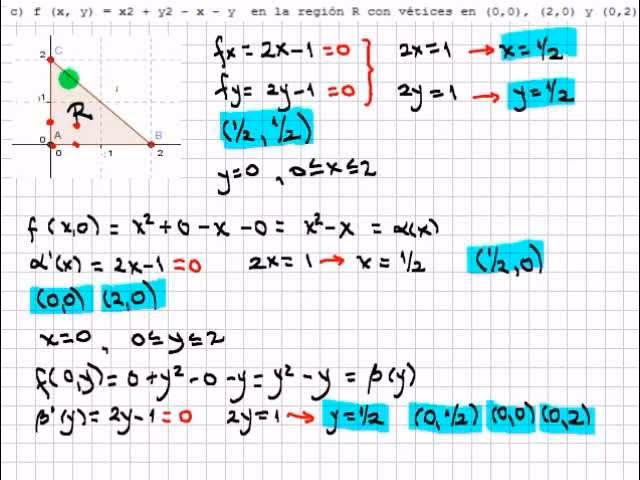 c) f (x, y) = x2 + y2 - x - y en la región R con vétices en (0,0), (2,0) y (0,2)
2 C
1
R
0 A B
0 1 2
fx = 2x-1 =0 2x=1 → x=1/2
fy = 2y-1 =0 2y=1 → y=1/2
(1/2, 1/2)
y=0 , 0≤x≤2
f(x,0) = x²+0-x-0 = x²-x = α(x)
α'(x) = 2x-1 =0 2x=1 → x=1/2 (1/2,0)
(0,0) (2,0)
x=0 , 0≤y≤2
f(0,y)=0+y²-0-y=y²-y = β(y)
β'(y)=2y-1=0 2y=1 → y=1/2 (0,1/2) (0,0) (0,2)